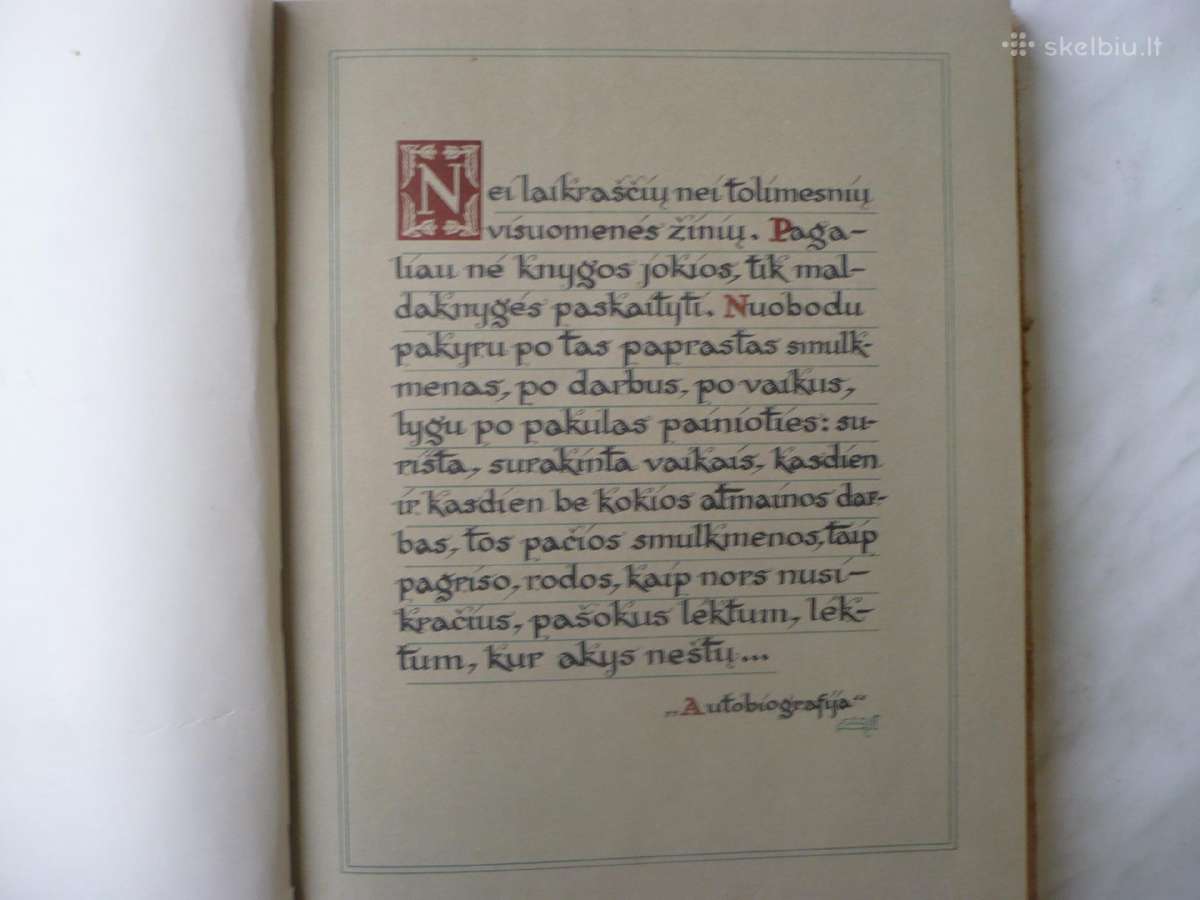 skelbiu.lt
Nei laikraščių nei tolimesnių
visuomenės žinių. Paga-
liau nė knygos jokios, tik mal-
daknygės paskaityti. Nuobodu
pakyru po tas paprastas smulk-
menas, po darbus, po vaikus,
lygu po pakulas painioties: su-
rišta, surakinta vaikais, kasdien
ir kasdien be kokios atmainos dar-
bas, tos pačios smulkmenos, taip
pagriso, rodos, kaip nors nusi-
kračius, pašokus lėktum, lėk-
tum, kur akys neštų...
„Autobiografija"